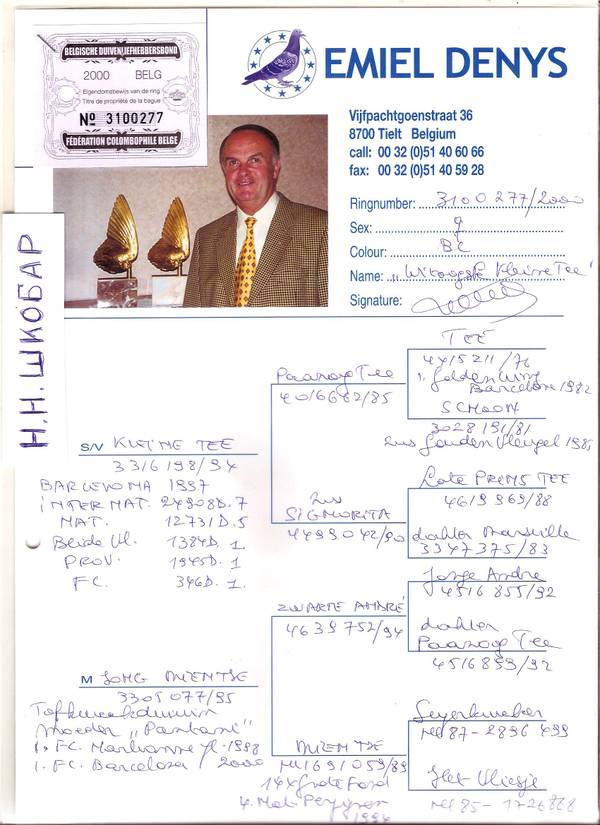 BELGISCHE DUIVENLIEFHEBBERSBOND
2000 BELG
Eigendomsbewijs van de ring
Titre de propriété de la bague
Nº 3100277
FÉDÉRATION COLOMBOPHILE BELGE
EMIEL DENYS
Vijfpachtgoenstraat 36
8700 Tielt Belgium
call: 00 32 (0)51 40 60 66
fax: 00 32 (0)51 40 59 28
Ringnumber: 3100277/2000
Sex:
Colour: BC
Name: „Witoogste Kleine Tee"
Signature:
Н.Н. ШКОБАР
S/V KLEINE TEE
3316198/94
BARCELONA 1997
INTERNAT. 24908D. 7
NAT. 12731D. 5
Beide Vl. 1384D. 1.
PROV. 1945D. 1.
F.C. 346D. 1.
M JONG MIENTJE
3305077/95
Topkweekduivin
Moeder „Pantani"
1. FC. Barcelona / 2000
Paaroog Tee
4016662/85
TEE
4415211/76
1. Golden Wing
Barcelona 1982
SCHOON
3028191/81
zus Gouden Vleugel 1985
zus
SIGNORITA
4499042/90
Late PRINS TEE
4619969/88
dochter Marseille
3347375/83
ZWARTE ANDRÉ
4639752/94
Jonge Andre
4516855/92
dochter
Paaroog Tee
4516899/92
MIENTJE
NL1691059/89
14x Grote Fond
4. Nat. Perpignan
1994
NL 87-2896499
Het Vliesje
NL 85-1726868